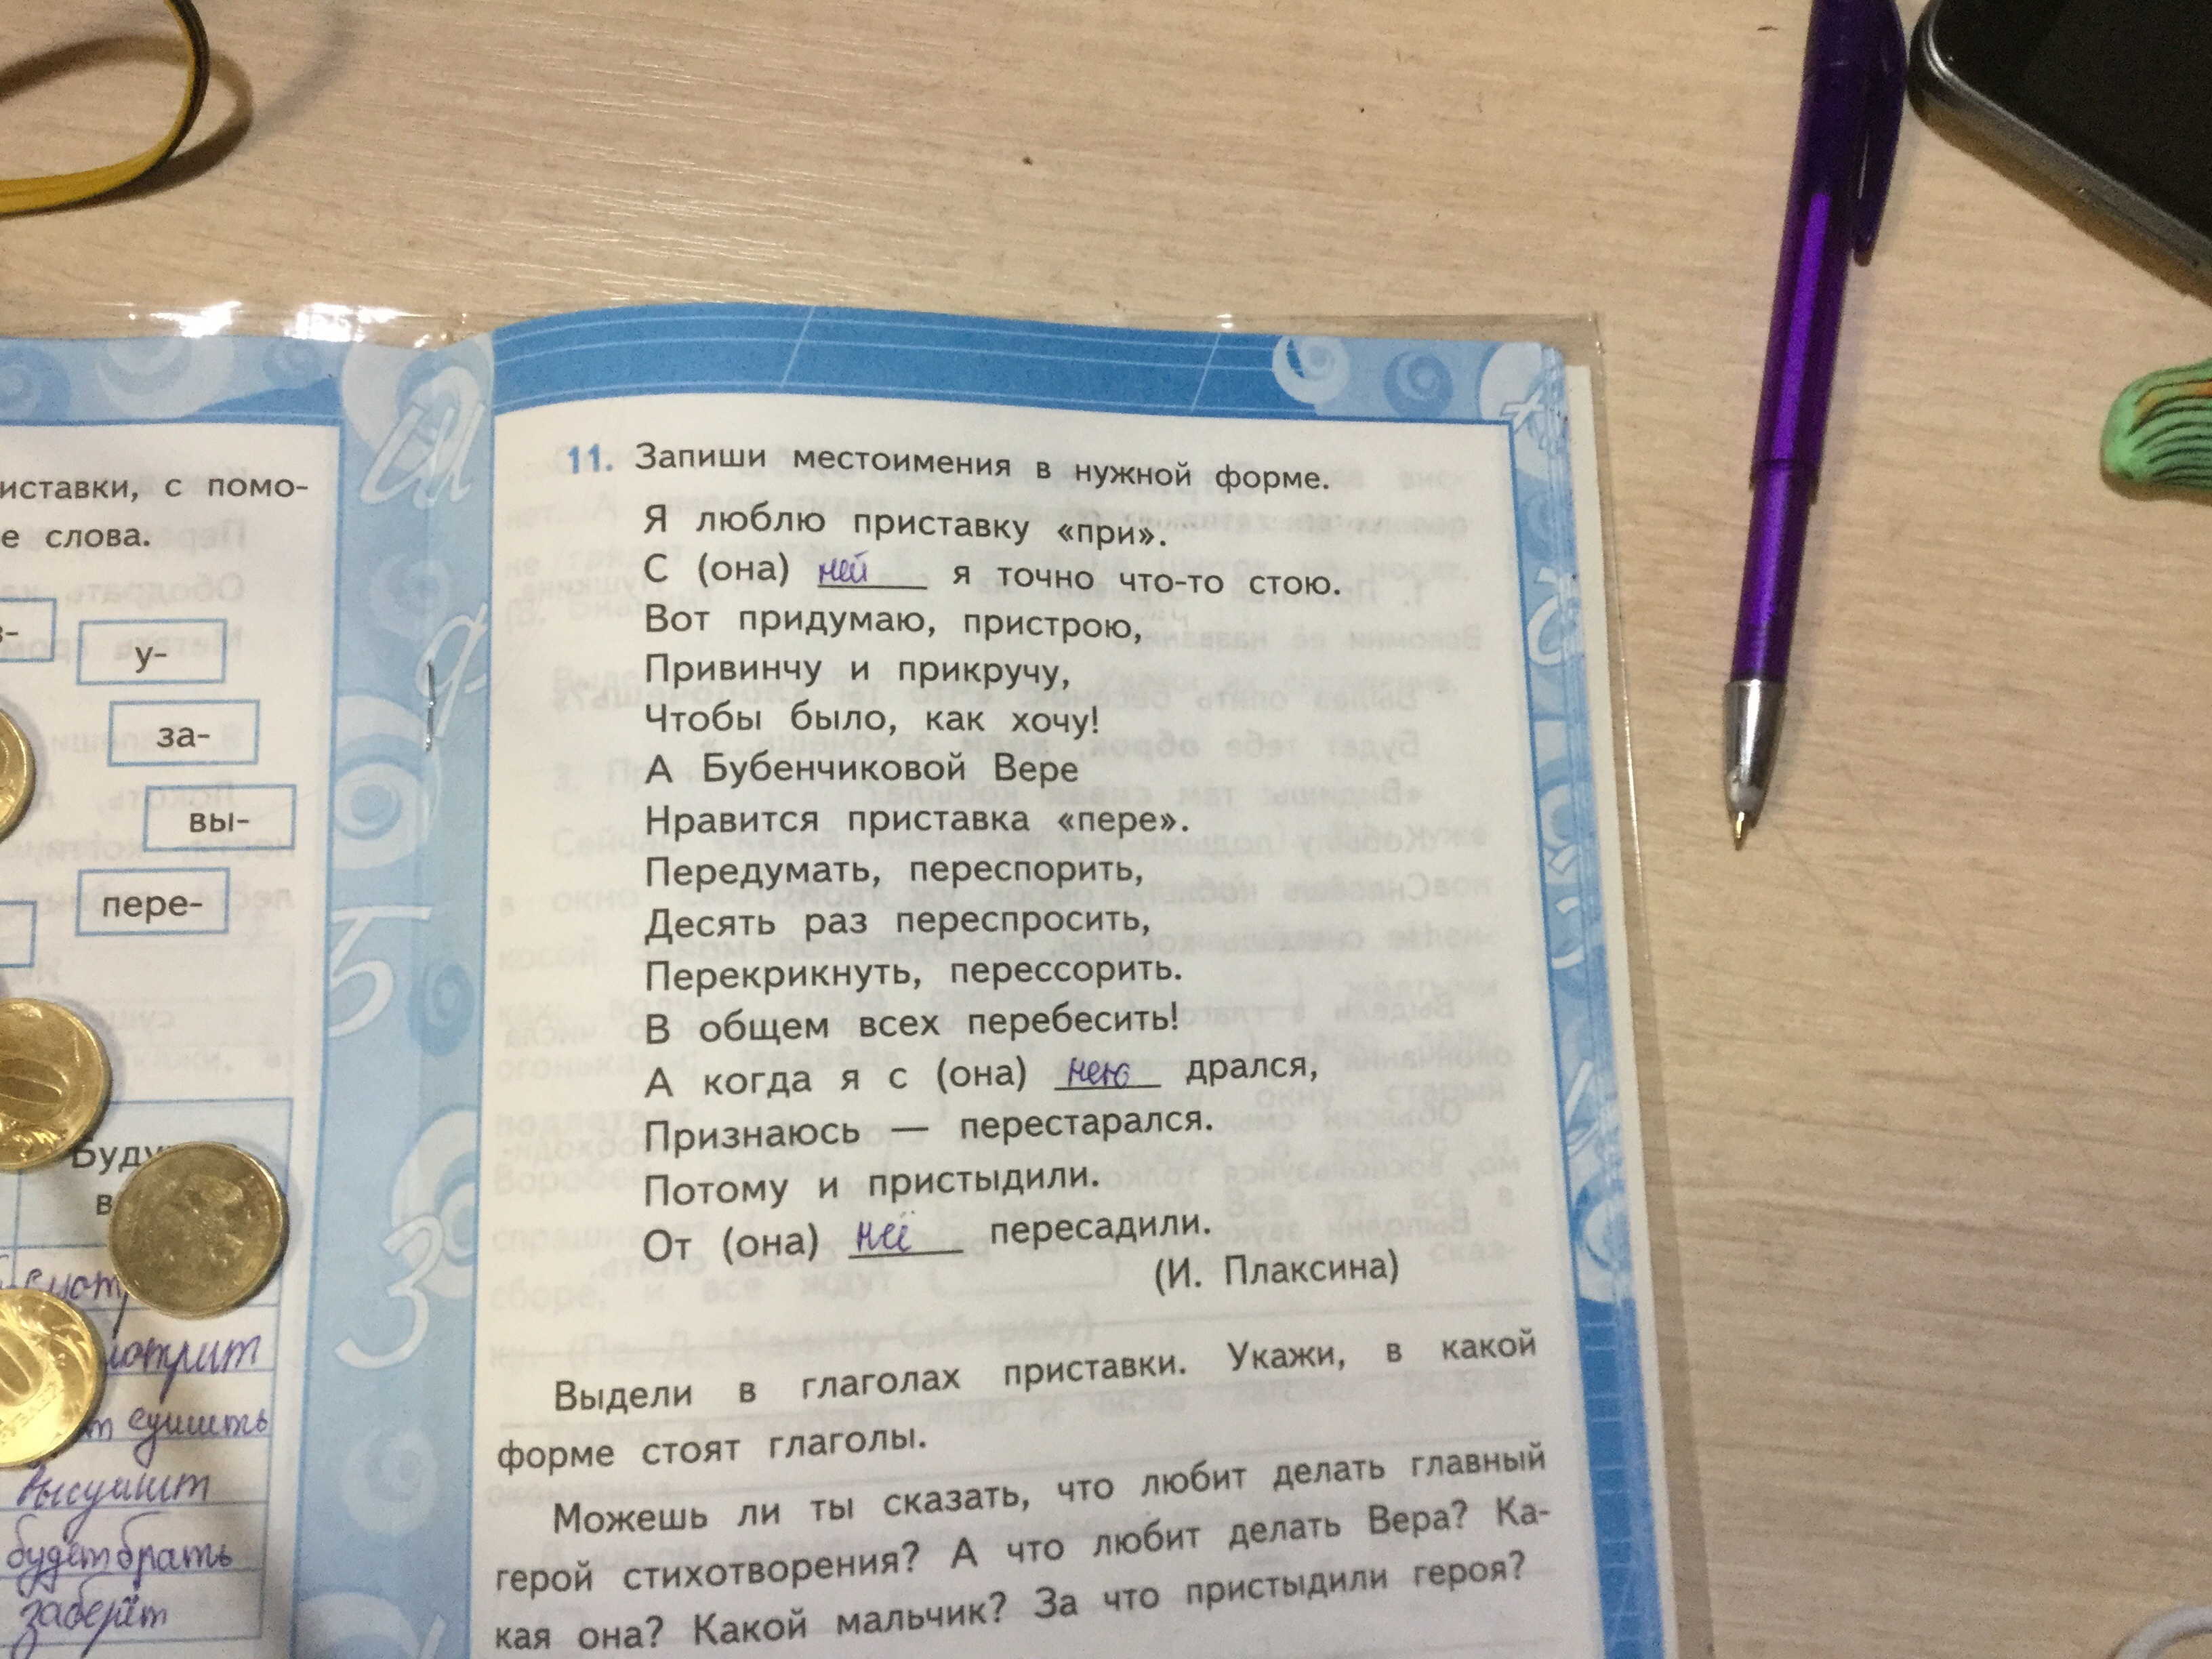 иставки, с помо-
е слова.
в-
у-
за-
вы-
пере-
Буду
в
мотрит
сушить
высушит
будет брать
заберёт
11. Запиши местоимения в нужной форме.
Я люблю приставку «при».
С (она) ней я точно что-то стою.
Вот придумаю, пристрою,
Привинчу и прикручу,
Чтобы было, как хочу!
А Бубенчиковой Вере
Нравится приставка «пере».
Передумать, переспорить,
Десять раз переспросить,
Перекрикнуть, перессорить.
В общем всех перебесить!
А когда я с (она) нею дрался,
Признаюсь — перестарался.
Потому и пристыдили.
От (она) неё пересадили.
(И. Плаксина)
Выдели в глаголах приставки. Укажи, в какой
форме стоят глаголы.
Можешь ли ты сказать, что любит делать главный
герой стихотворения? А что любит делать Вера? Ка-
кая она? Какой мальчик? За что пристыдили героя?